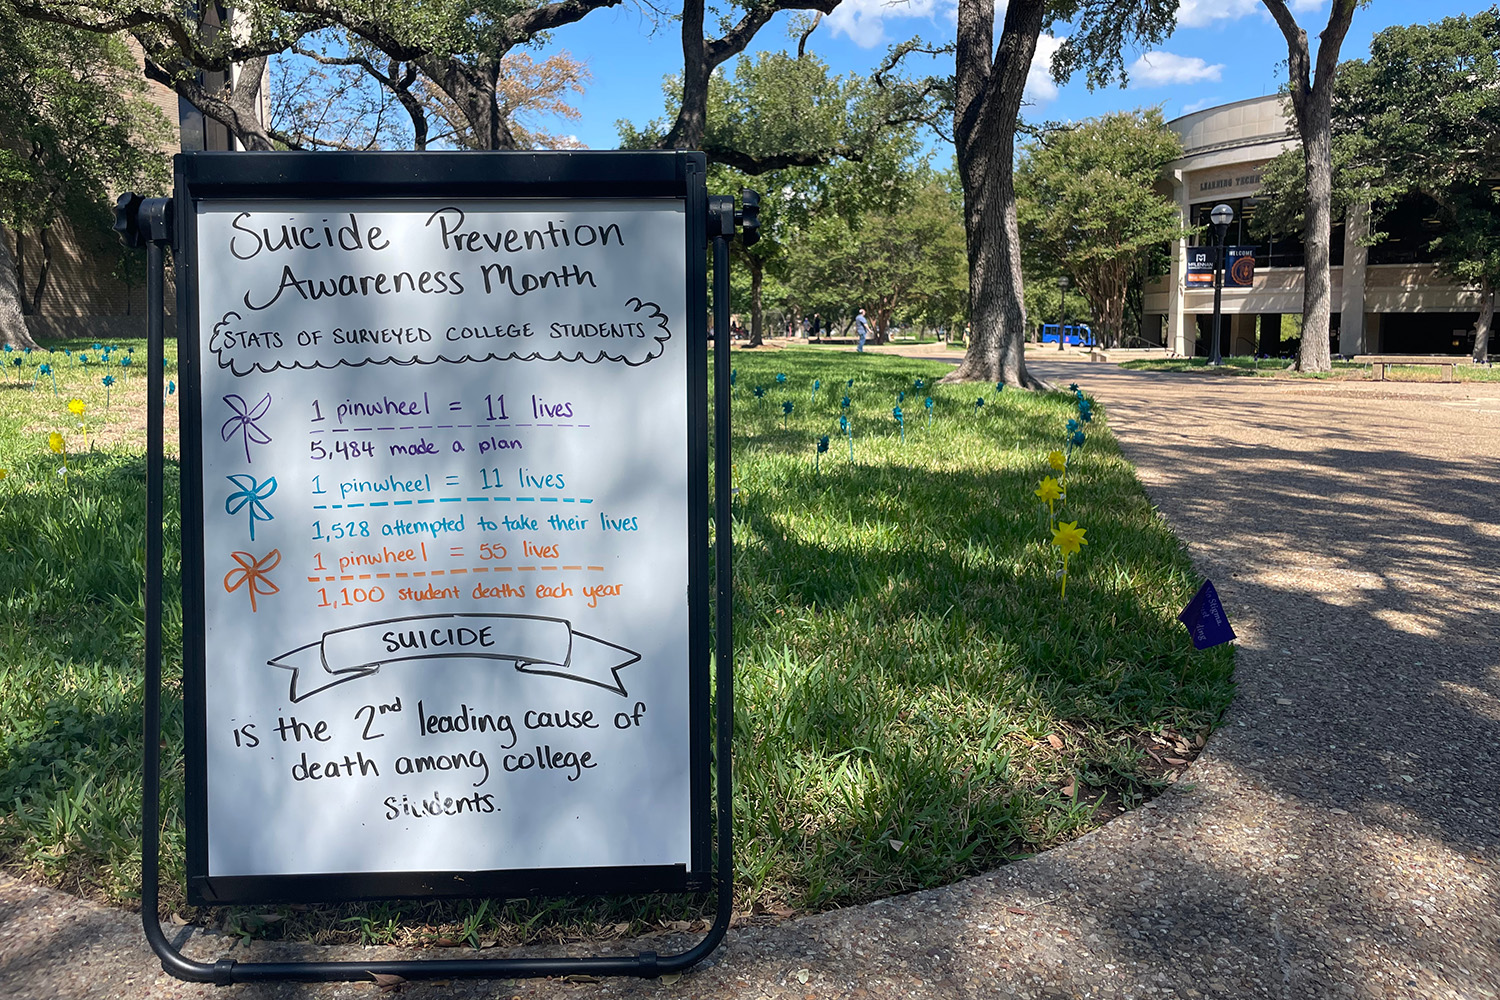 Suicide Prevention
Awareness Month
STATS OF SURVEYED COLLEGE STUDENTS
1 pinwheel = 11 lives
5,484 made a plan
1 pinwheel = 11 lives
1,528 attempted to take their lives
1 pinwheel = 55 lives
1,100 student deaths each year
SUICIDE
is the 2nd leading cause of
death among college
students.
LEARNING TECHN
MCLENNAN
WELCOME
Stigma